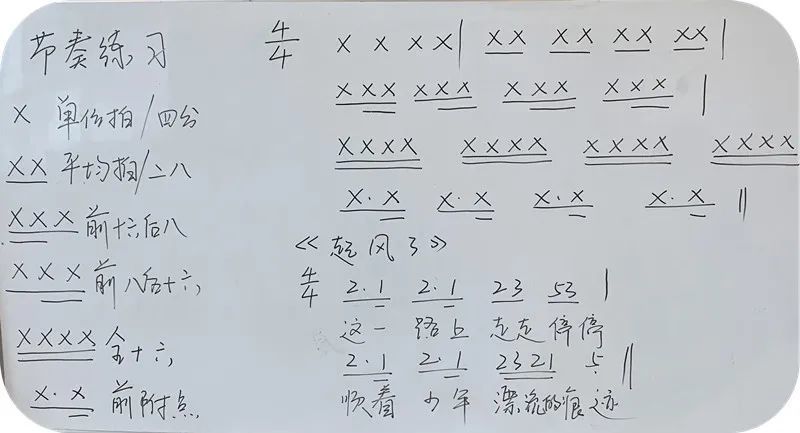 节奏练习
X 单位拍/四分
XX 平均拍/二八
XXX 前十六后八
XXX 前八后十六
XXXX 全十六
X·X 前附点
4/4 X X X X | XX XX XX XX |
XXX XXX XXX XXX |
XXXX XXXX XXXX XXXX
X·X X·X X·X X·X ‖
《起风了》
4/4 2·1 2·1 23 53 |
这一 路上 走走 停停
2·1 2·1 2321 5 ‖
顺着 少年 漂流的痕 迹